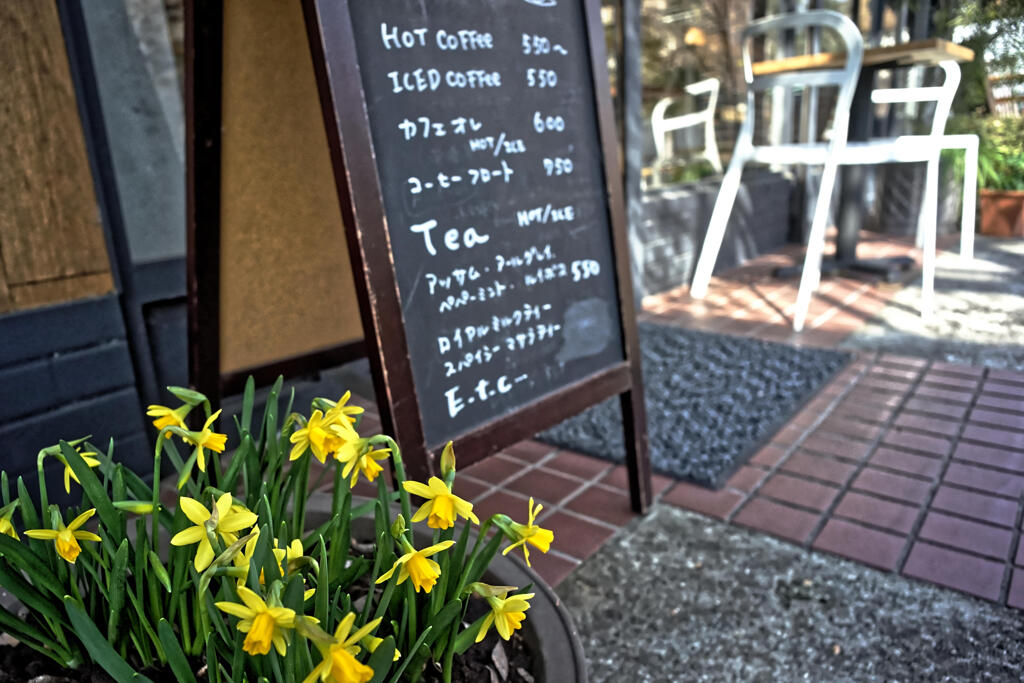 HOT COFFEE 550〜
ICED COFFEE 550
カフェオレ 600
HOT/ICE
コーヒーフロート 750
Tea HOT/ICE
アッサム・アールグレイ
ペパーミント・ルイボス 550
ロイヤルミルクティー
スパイシーマサラティー
E.t.c